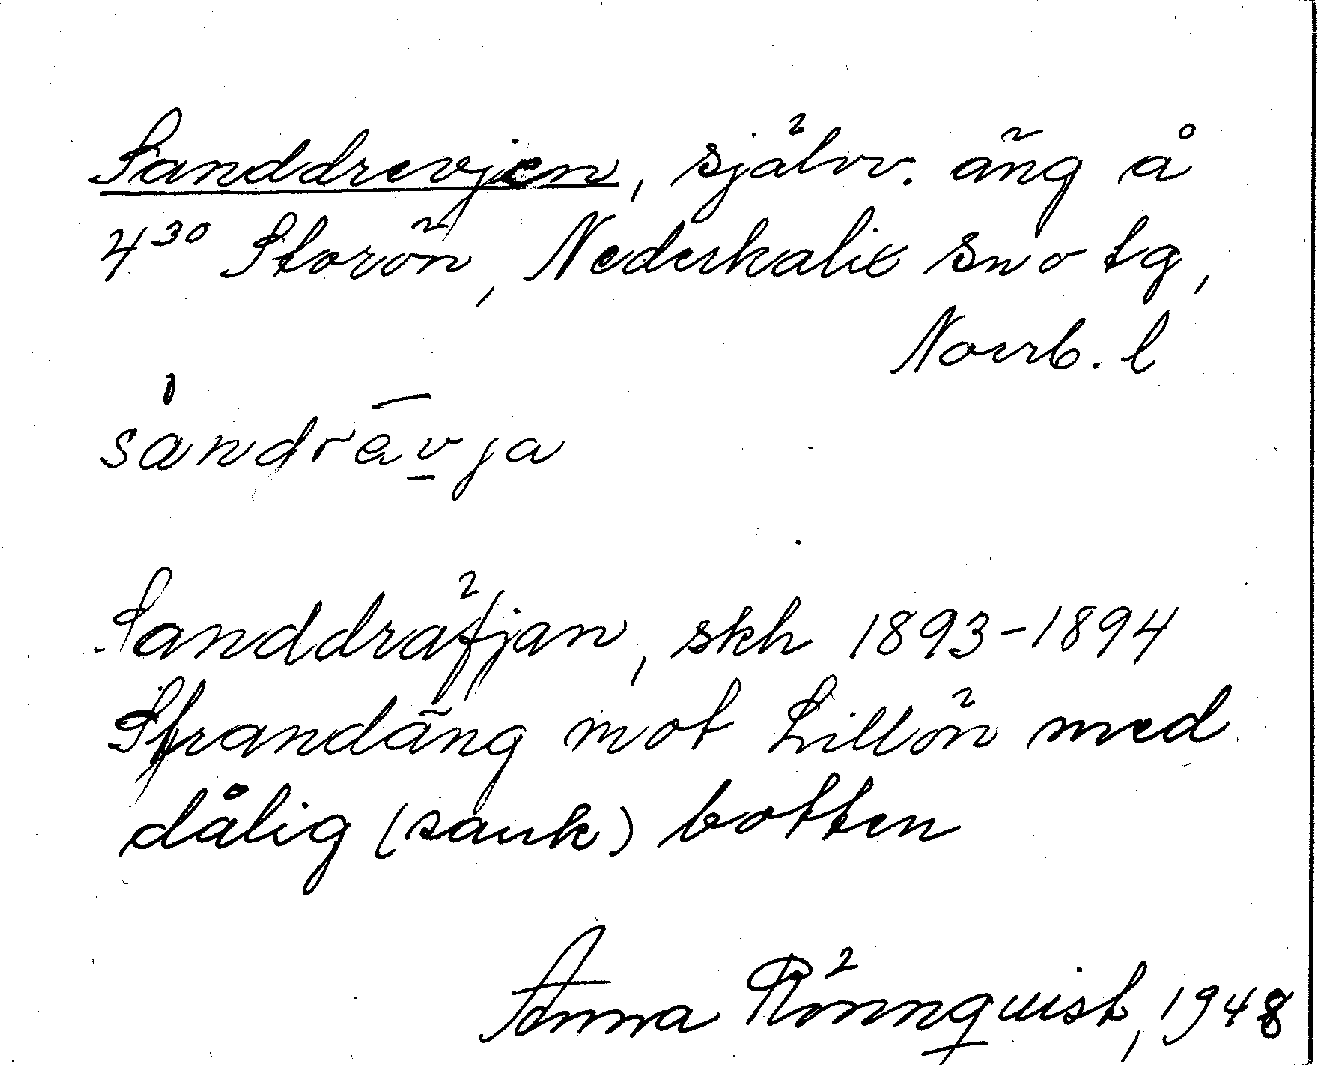 Sanddrevjen, självv. äng å
4³⁰ Storön, Nederkalix sn o tg,
Norrb. l
såndrävja
Sanddräfjan, skh 1893-1894
Strandäng mot Lillön med
dålig (sank) botten
Anna Rönnquist, 1948